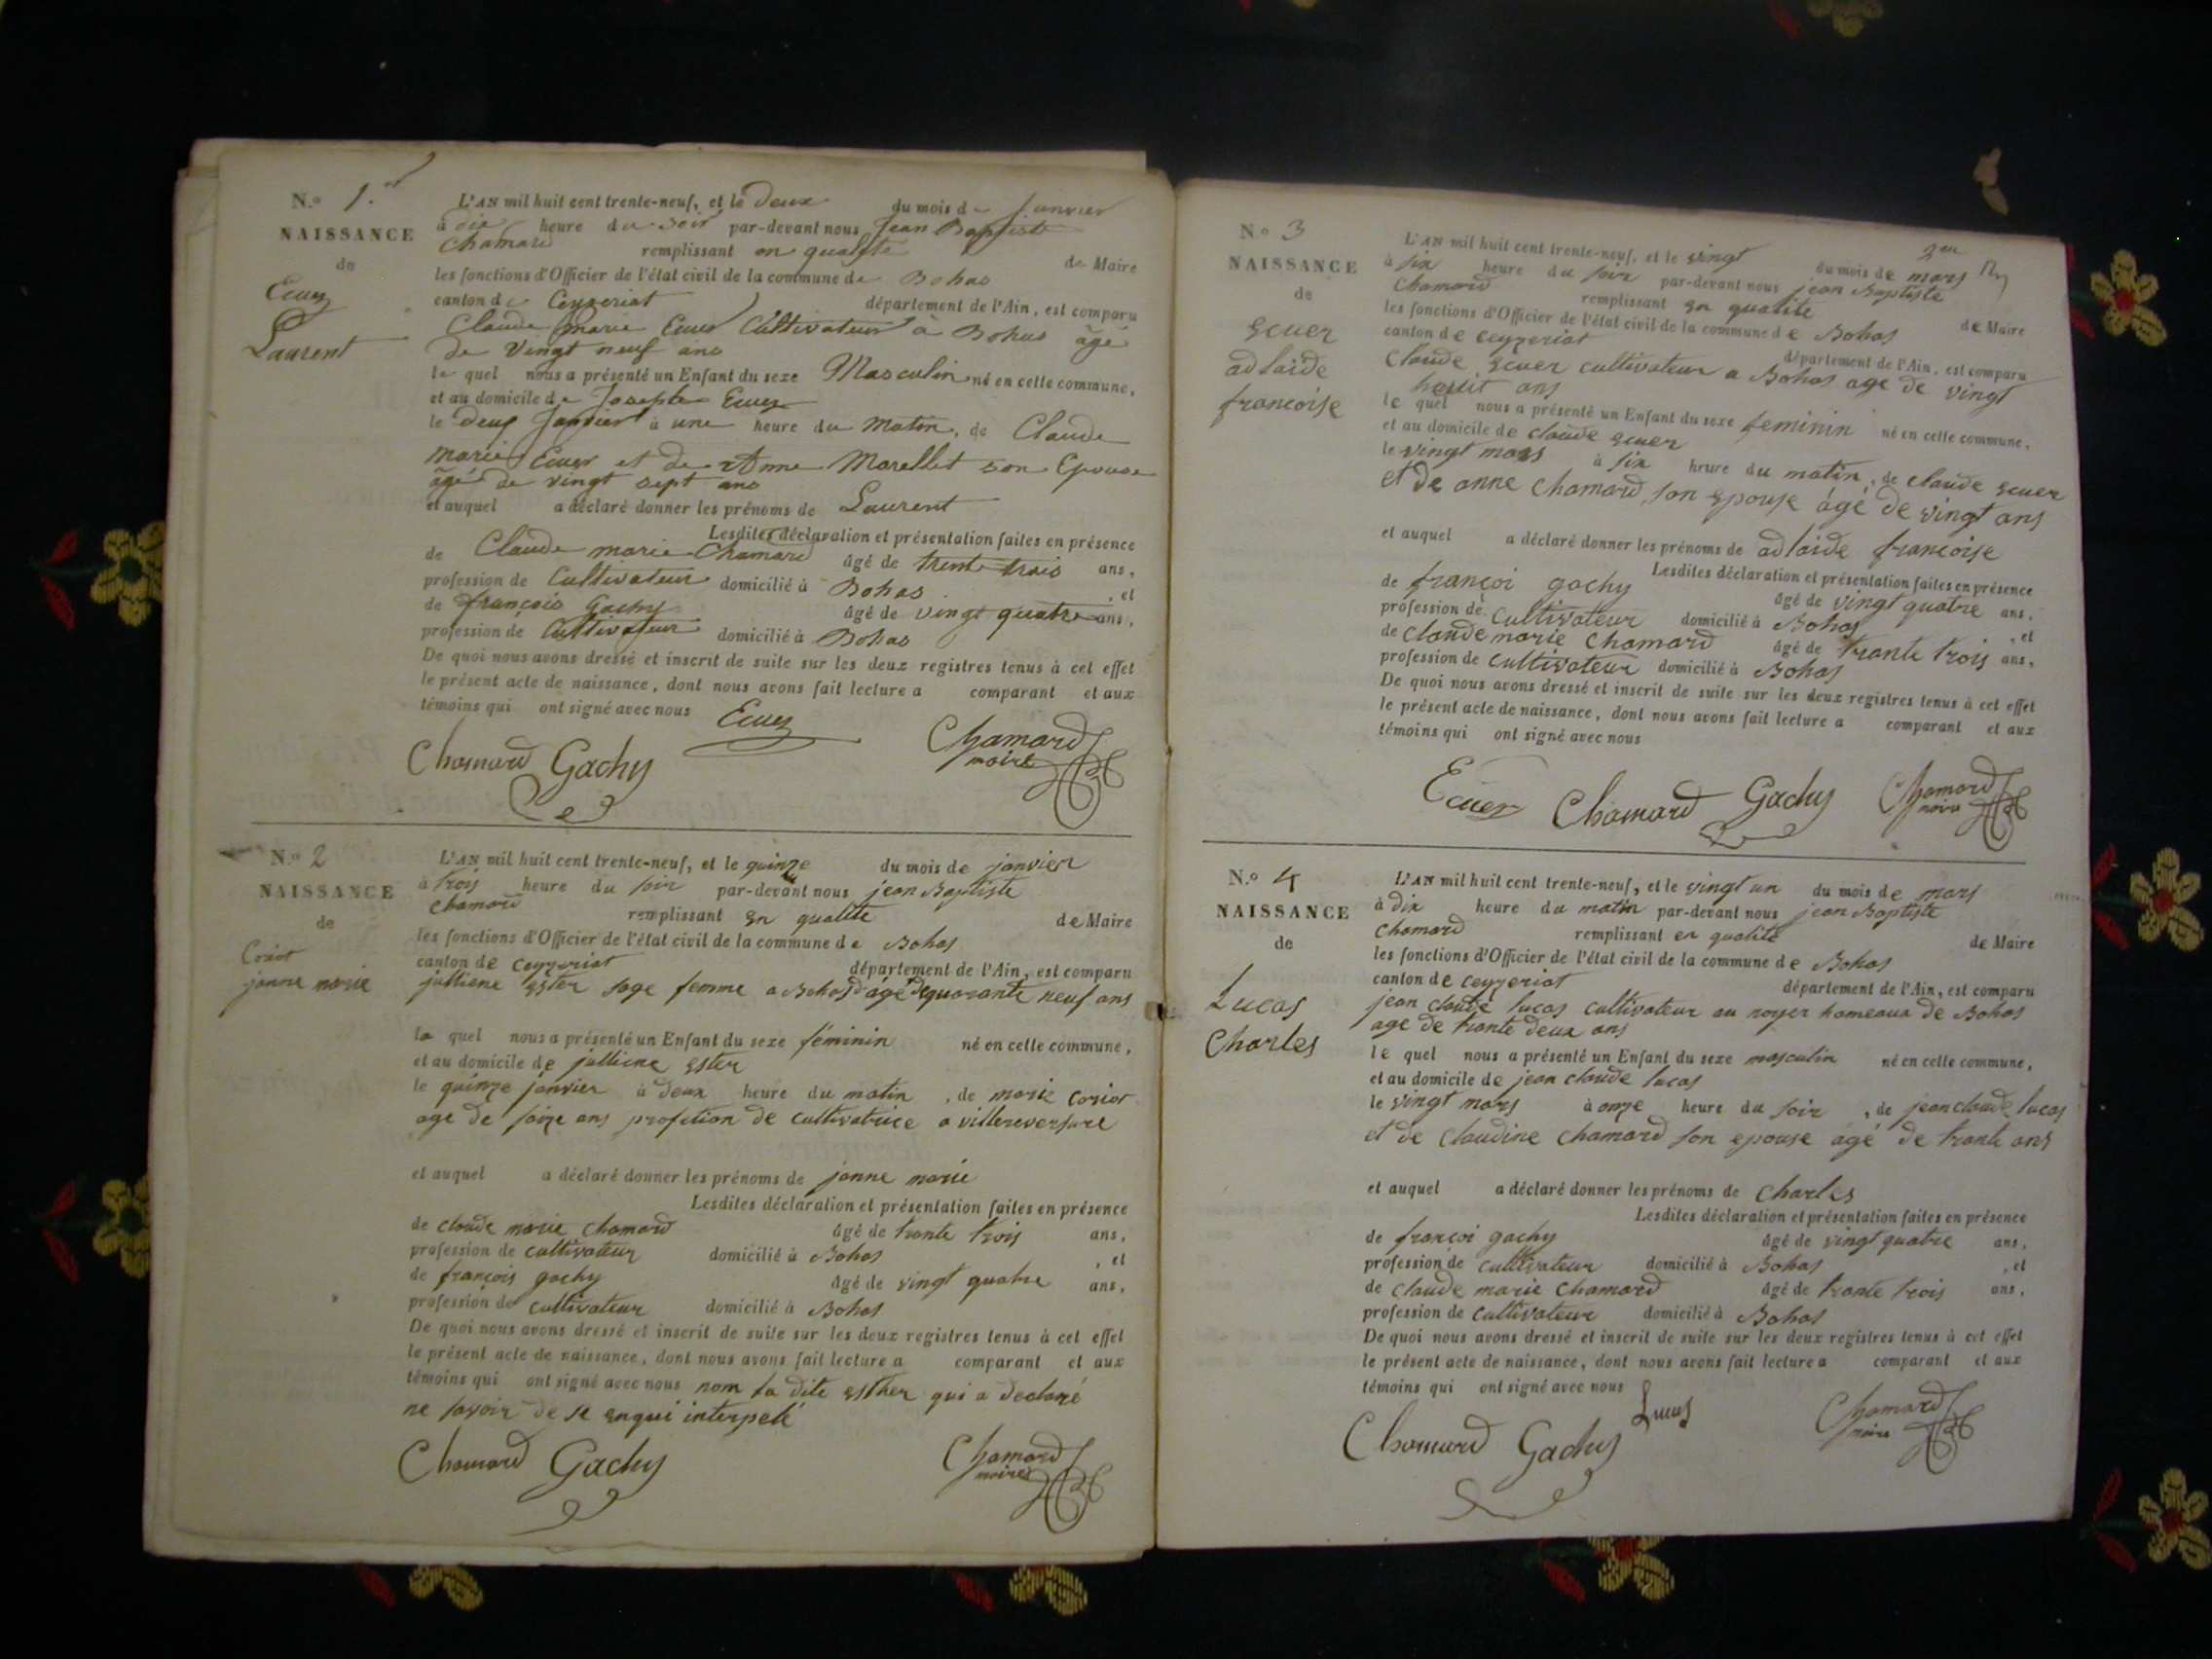 N.º 1.er
NAISSANCE
de
Ecuer
Laurent
L'AN mil huit cent trente-neuf, et le Deux du mois de Janvier
à dix heure du Soir par-devant nous Jean Baptiste
Chamard remplissant en qualité de Maire
les fonctions d'Officier de l'état civil de la commune de Bohas
canton de Ceyzeriat département de l'Ain, est comparu
Claude Marie Ecuer Cultivateur à Bohas âgé
de vingt neuf ans
le quel nous a présenté un Enfant du sexe Masculin né en cette commune,
et au domicile de Joseph Ecuer
le deux Janvier à une heure du Matin, de Claude
marie Ecuer et de Anne Marellet son Epouse
âgé de vingt sept ans
et auquel a déclaré donner les prénoms de Laurent
Lesdites déclaration et présentation faites en présence
de Claude marie Chamard âgé de trente trois ans,
profession de Cultivateur domicilié à Bohas , et
de françois Gachy âgé de vingt quatre ans,
profession de Cultivateur domicilié à Bohas
De quoi nous avons dressé et inscrit de suite sur les deux registres tenus à cet effet
le présent acte de naissance, dont nous avons fait lecture a comparant et aux
témoins qui ont signé avec nous Ecuer
Chamard Gachy Chamard
maire
N.º 2
NAISSANCE
de
Coriot
janne marie
L'AN mil huit cent trente-neuf, et le quinze du mois de janvier
à trois heure du soir par-devant nous jean Baptiste
chamard remplissant en qualité de Maire
les fonctions d'Officier de l'état civil de la commune de Bohas
canton de ceyzeriat département de l'Ain, est comparu
julliene Ester sage femme a Bohas agé de quarante neuf ans
la quel nous a présenté un Enfant du sexe féminin né en cette commune,
et au domicile de julliene Ester
le quinze janvier à deux heure du matin , de marie coriot
age de saize ans profetion de cultivatrice a villereversure
et auquel a déclaré donner les prénoms de janne marie
Lesdites déclaration et présentation faites en présence
de claude marie chamard âgé de trante trois ans,
profession de cultivateur domicilié à Bohas , et
de françois gachy âgé de vingt quatre ans,
profession de cultivateur domicilié à Bohas
De quoi nous avons dressé et inscrit de suite sur les deux registres tenus à cet effet
le présent acte de naissance, dont nous avons fait lecture a comparant et aux
témoins qui ont signé avec nous nom la dite esther qui a declaré
ne savoir de se enqui interpelé
Chamard Gachy Chamard
maire
N.º 3
NAISSANCE
de
ecuer
adlaide
francoise
L'AN mil huit cent trente-neuf, et le vingt du mois de mars
à six heure du soir par-devant nous jean Baptiste
Chamard remplissant en qualité de Maire
les fonctions d'Officier de l'état civil de la commune de Bohas
canton de ceyzeriat département de l'Ain, est comparu
claude ecuer cultivateur a Bohas age de vingt
heuit ans
le quel nous a présenté un Enfant du sexe feminin né en cette commune,
et au domicile de claude ecuer
le vingt mars à six heure du matin, de claude ecuer
et de anne chamard son epouse âgé de vingt ans
et auquel a déclaré donner les prénoms de adlaide francoise
Lesdites déclaration et présentation faites en présence
de françoi gachy âgé de vingt quatre ans,
profession de cultivateur domicilié à Bohas , et
de claude marie chamard âgé de trante trois ans,
profession de cultivateur domicilié à Bohas
De quoi nous avons dressé et inscrit de suite sur les deux registres tenus à cet effet
le présent acte de naissance, dont nous avons fait lecture a comparant et aux
témoins qui ont signé avec nous
Ecuer Chamard Gachy Chamard
maire
N.º 4
NAISSANCE
de
Lucas
Charles
L'AN mil huit cent trente-neuf, et le vingt un du mois de mars
à dix heure du matin par-devant nous jean Baptiste
chamard remplissant en qualité de Maire
les fonctions d'Officier de l'état civil de la commune de Bohas
canton de ceyzeriat département de l'Ain, est comparu
jean claude lucas cultivateur au noyer hameaux de Bohas
age de trante deux ans
le quel nous a présenté un Enfant du sexe masculin né en cette commune,
et au domicile de jean claude lucas
le vingt mars à onze heure du soir , de jean claude lucas
et de claudine chamard son epouse âgé de trante ans
et auquel a déclaré donner les prénoms de charles
Lesdites déclaration et présentation faites en présence
de françoi gachy âgé de vingt quatre ans,
profession de cultivateur domicilié à Bohas , et
de claude marie chamard âgé de trante trois ans,
profession de cultivateur domicilié à Bohas
De quoi nous avons dressé et inscrit de suite sur les deux registres tenus à cet effet
le présent acte de naissance, dont nous avons fait lecture a comparant et aux
témoins qui ont signé avec nous
Lucas
Chamard Gachy Chamard
maire